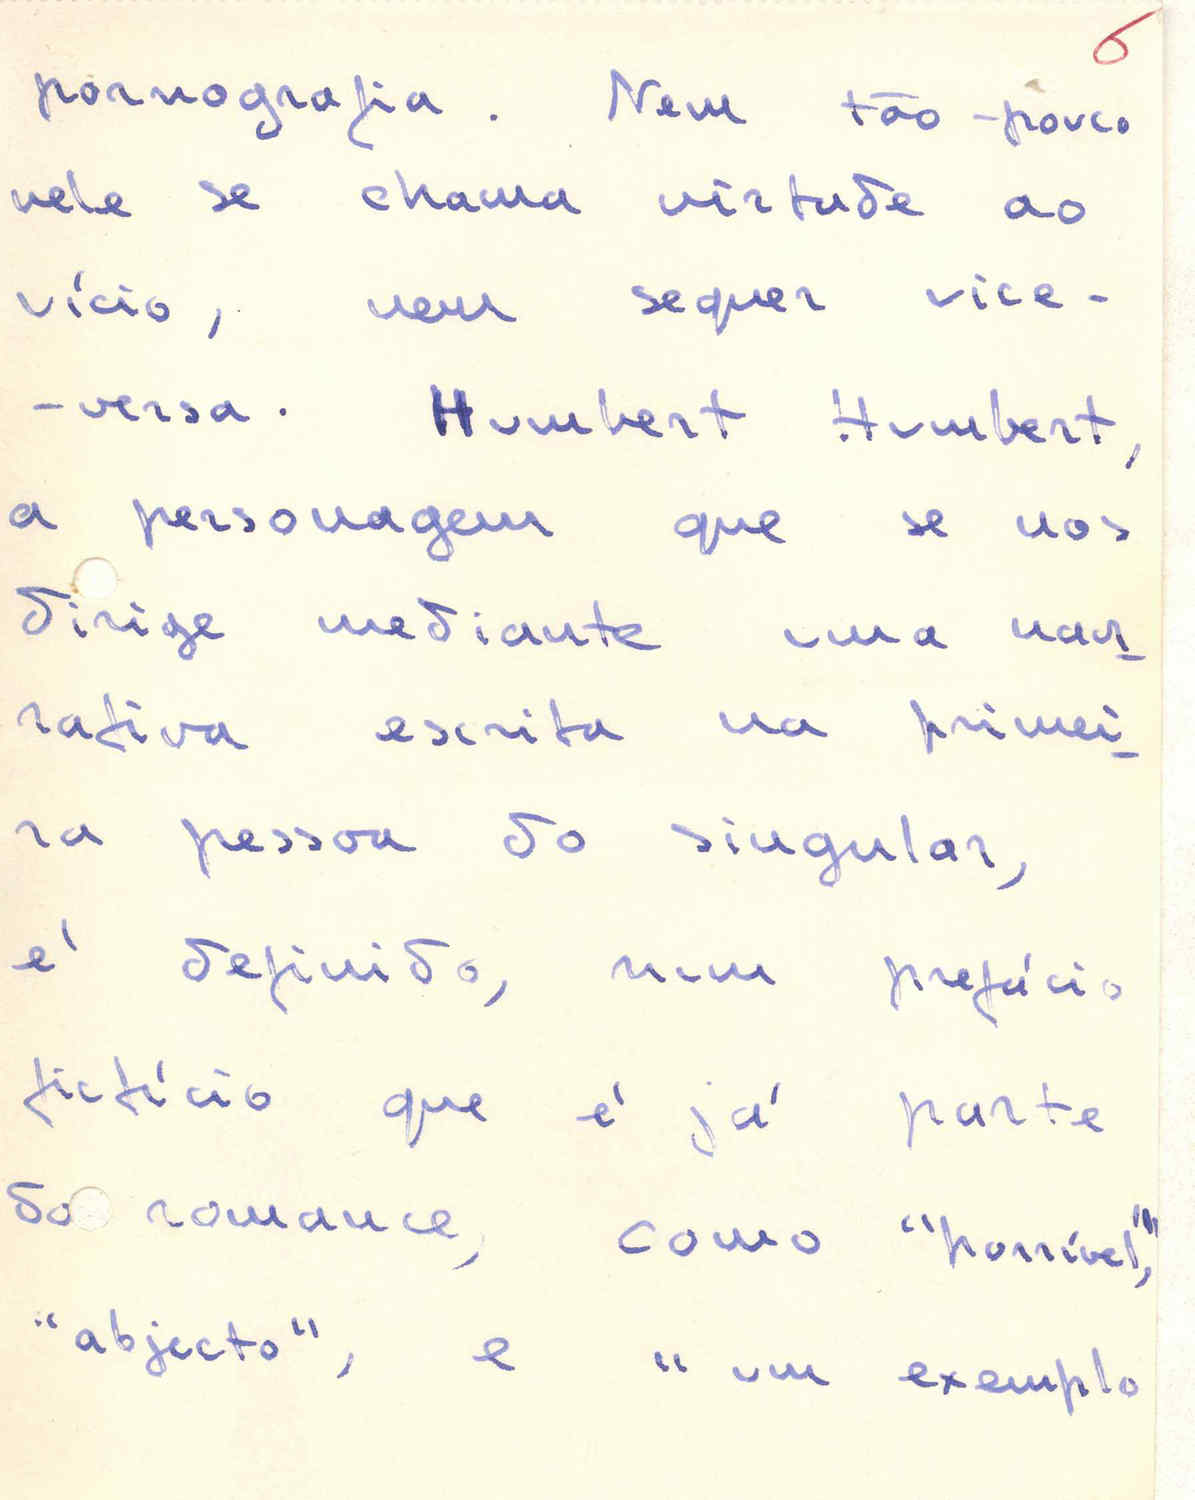 6
pornografia. Nem tão-pouco
nele se chama virtude ao
vício, nem sequer vice-
-versa. Humbert Humbert,
a personagem que se nos
dirige mediante uma nar-
rativa escrita na primei-
ra pessoa do singular,
é definido, num prefácio
fictício que é já parte
do romance, como "horrível",
"abjecto", e "um exemplo